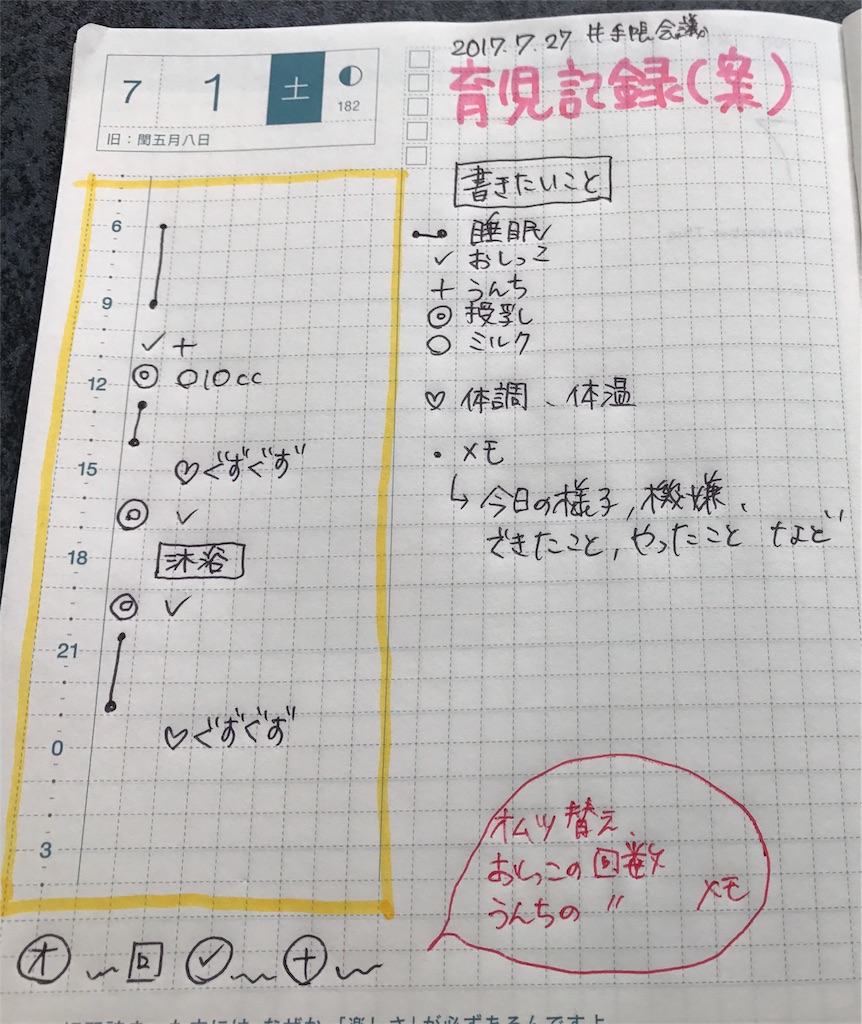 2017.7.27 #手帳会議
7 1 土 182
旧：閏五月八日
育児記録(案)
書きたいこと
睡眠
✓ おしっこ
+ うんち
◎ 授乳
○ ミルク
♡ 体調、体温
・メモ
↳ 今日の様子, 機嫌、
できたこと, やったこと など
6
9
✓ +
12 ◎ ○10cc
15 ♡ぐずぐず
◎ ✓
18 沐浴
◎ ✓
21
0 ♡ぐずぐず
3
オムツ替え、
おしっこの回数
うんちの 〃 メモ
オ 〜 回 ✓ 〜 + 〜
「楽しさ」が必ずあるんですよ